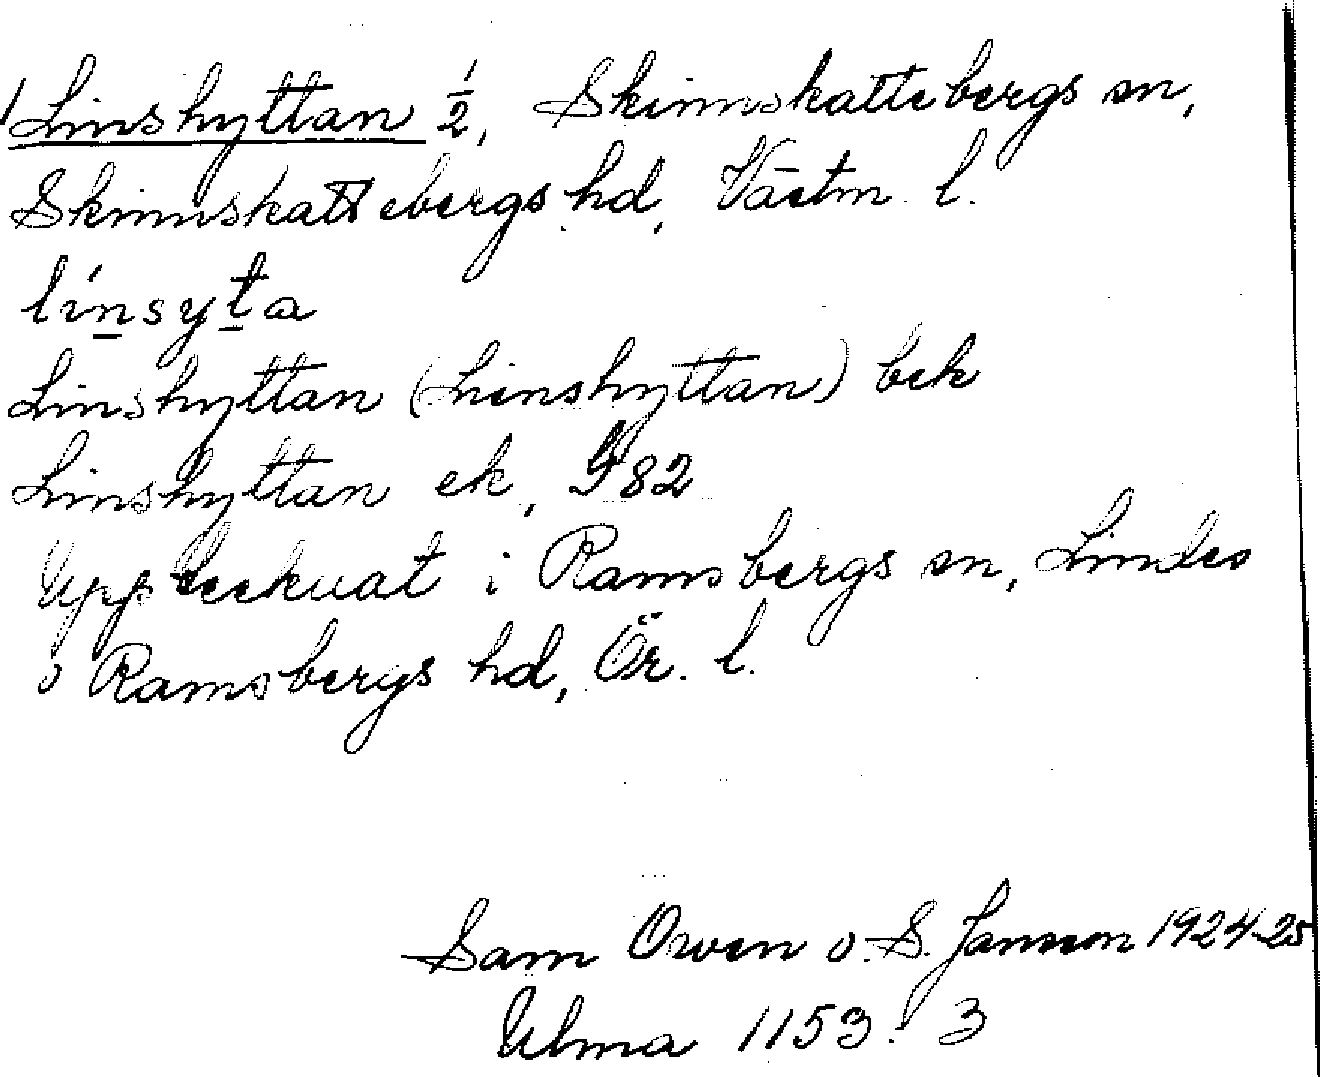 Linshyttan ½, Skinnskattebergs sn,
Skinnskattebergs hd, Västm l.
línsyta
Linshyttan (Linshyttan) bek
Linshyttan ek, G 82
Upptecknat i Ramsbergs sn, Lindes
o Ramsbergs hd, Ör. l.
Sam Owen o. S. Janson 1924-25
Ulma 1153:3